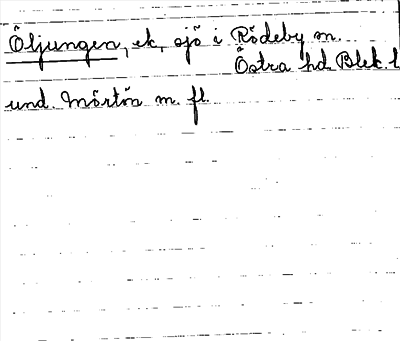 Öljungen, ek, sjö i Rödeby sn.
Östra hd Blek. l
und. Mörtön m. fl.